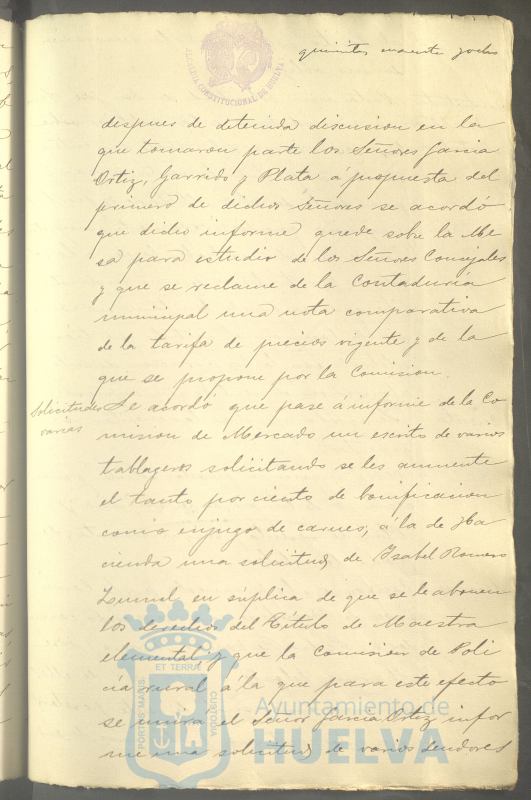 ALCALDIA CONSTITUCIONAL DE HUELVA
despues de detenida discusion en la
que tomaron parte los Señores Garcia
Ortiz, Garrido y Plata á propuesta del
primero de dichos Señores se acordó
que dicho informe quede sobre la Me
sa para estudio de los Señores Concejales
y que se reclame de la Contaduría
municipal una nota comparativa
de la tarifa de precios vigente y de la
que se propone por la Comision.
Solicitudes
varias
Se acordó que pase á informe de la Co
mision de Mercado un escrito de varios
tablageros solicitando se les aumente
el tanto por ciento de bonificacion
como enjugo de carnes; á la de Ha
cienda una solicitud de Isabel Romero
en súplica de que se le abonen
los derechos del Título de Maestra
elemental y que la Comision de Poli
cía rural á la que para este efecto
se unirá el Señor Garcia Ortiz infor
me una solicitud de varios
PORTUS MARIS ET TERRAE CUSTODIA
Ayuntamiento de
HUELVA